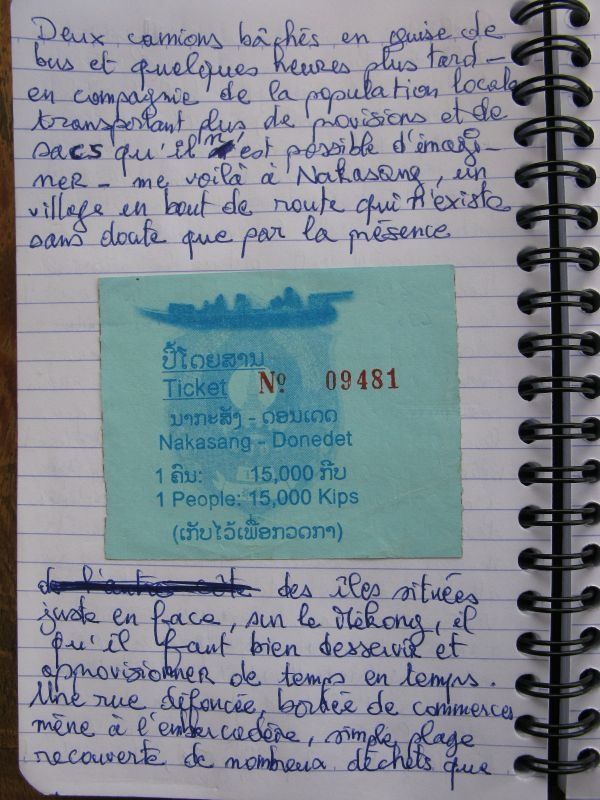 Deux camions bâchés en guise de
bus et quelques heures plus tard -
en compagnie de la population locale
transportant plus de provisions et de
sacs qu'il n'est possible d'imagi-
ner - me voilà à Nakasang, un
village en bout de route qui n'existe
sans doute que par la présence
ປີ້ໂດຍສານ
Ticket Nº 09481
ນາກະສັງ - ດອນເດດ
Nakasang - Donedet
1 ຄົນ: 15,000 ກີບ
1 People: 15,000 Kips
(ເກັບໄວ້ເພື່ອກວດກາ)
de l'autre côté des îles situées
juste en face, sur le Mékong, il
qu'il faut bien desservir et
approvisionner de temps en temps.
Une rue défoncée, bordée de commerces
mène à l'embarcadère, simple plage
recouverte de nombreux déchets que